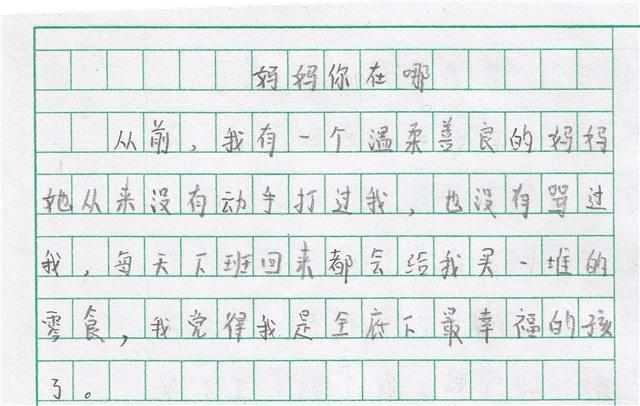 妈妈你在哪
从前，我有一个温柔善良的妈妈
她从来没有动手打过我，也没有骂过
我，每天下班回来都会给我买一堆的
零食，我觉得我是全底下最幸福的孩
了。